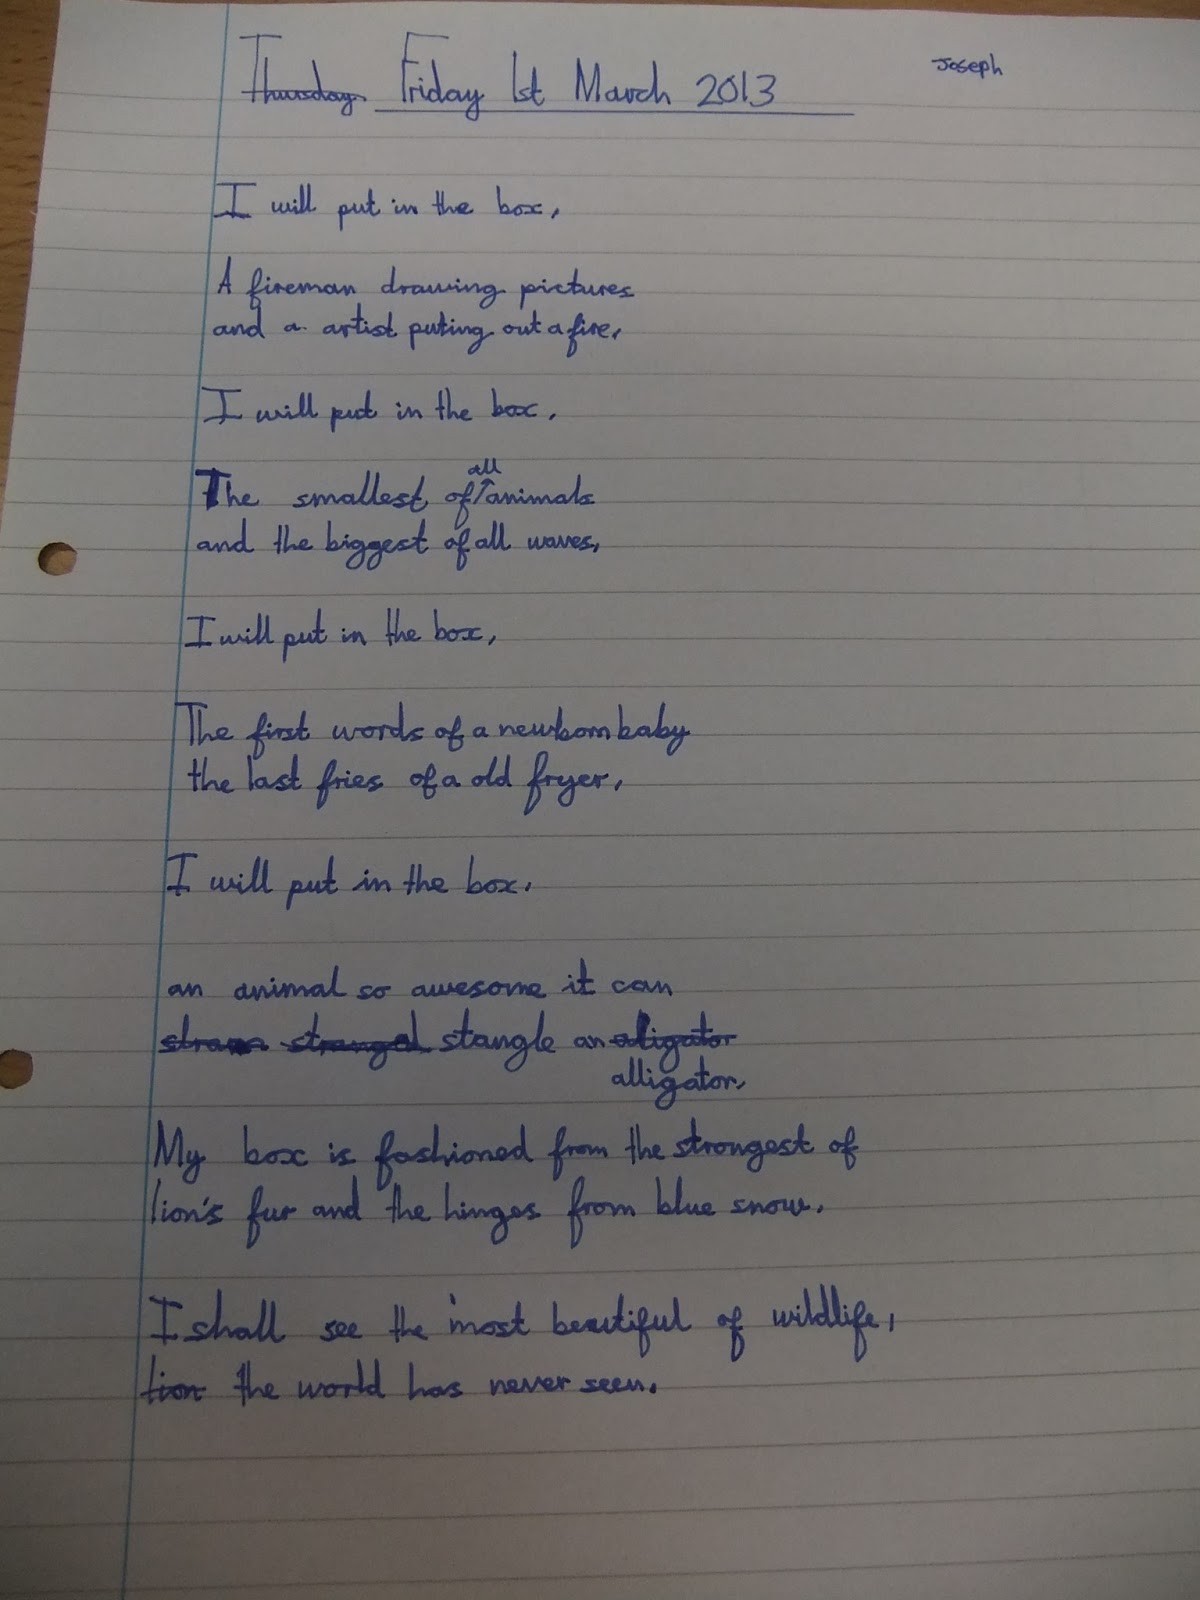 Thursday Friday 1st March 2013
Joseph
I will put in the box,
A fireman drawing pictures
and a artist puting out a fire,
I will put in the box,
The smallest of all animals
and the biggest of all waves,
I will put in the box,
The first words of a newborn baby
the last fries of a old fryer,
I will put in the box,
an animal so awesome it can
strangel stangle an aligator
alligator,
My box is fashioned from the strongest of
lion's fur and the hinges from blue snow.
I shall see the most beautiful of wildlife,
lion the world has never seen.